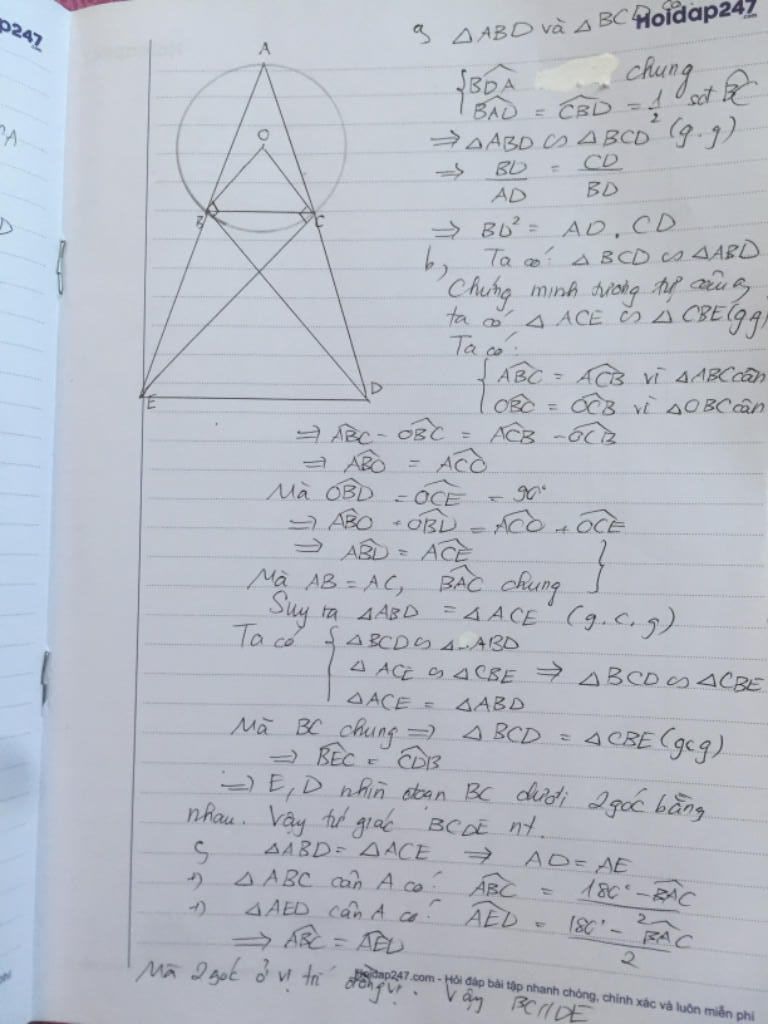 ap247
.com
Hoidap247
.com
a, △ABD và △BCD có
A
O
B
C
E
D
{ BDA chung
BAD = CBD = 1/2 sđt BC
⇒ △ABD ∽ △BCD (g.g)
⇒ BD/AD = CD/BD
⇒ BD² = AD . CD
b, Ta có: △BCD ∽ △ABD
Chứng minh tương tự câu a,
ta có △ACE ∽ △CBE (gg)
Ta có:
{ ABC = ACB vì △ABC cân
OBC = OCB vì △OBC cân
⇒ ABC - OBC = ACB - OCB
⇒ ABO = ACO
Mà OBD = OCE = 90°
⇒ ABO + OBD = ACO + OCE
⇒ ABD = ACE }
Mà AB = AC, BAC chung
Suy ra △ABD = △ACE (g.c.g)
Ta có { △BCD ∽ △ABD
△ACE ∽ △CBE ⇒ △BCD ∽ △CBE
△ACE = △ABD
Mà BC chung ⇒ △BCD = △CBE (gcg)
⇒ BEC = CDB
⇒ E, D nhìn đoạn BC dưới 2 góc bằng
nhau. Vậy tứ giác BCDE nt.
c, △ABD = △ACE ⇒ AD = AE
+) △ABC cân A có: ABC = (180° - BAC)/2
+) △AED cân A có: AED = (180° - BAC)/2
⇒ ABC = AED
Mà 2 góc ở vị trí đồng vị. Vậy BC // DE
Hoidap247.com - Hỏi đáp bài tập nhanh chóng, chính xác và luôn miễn phí